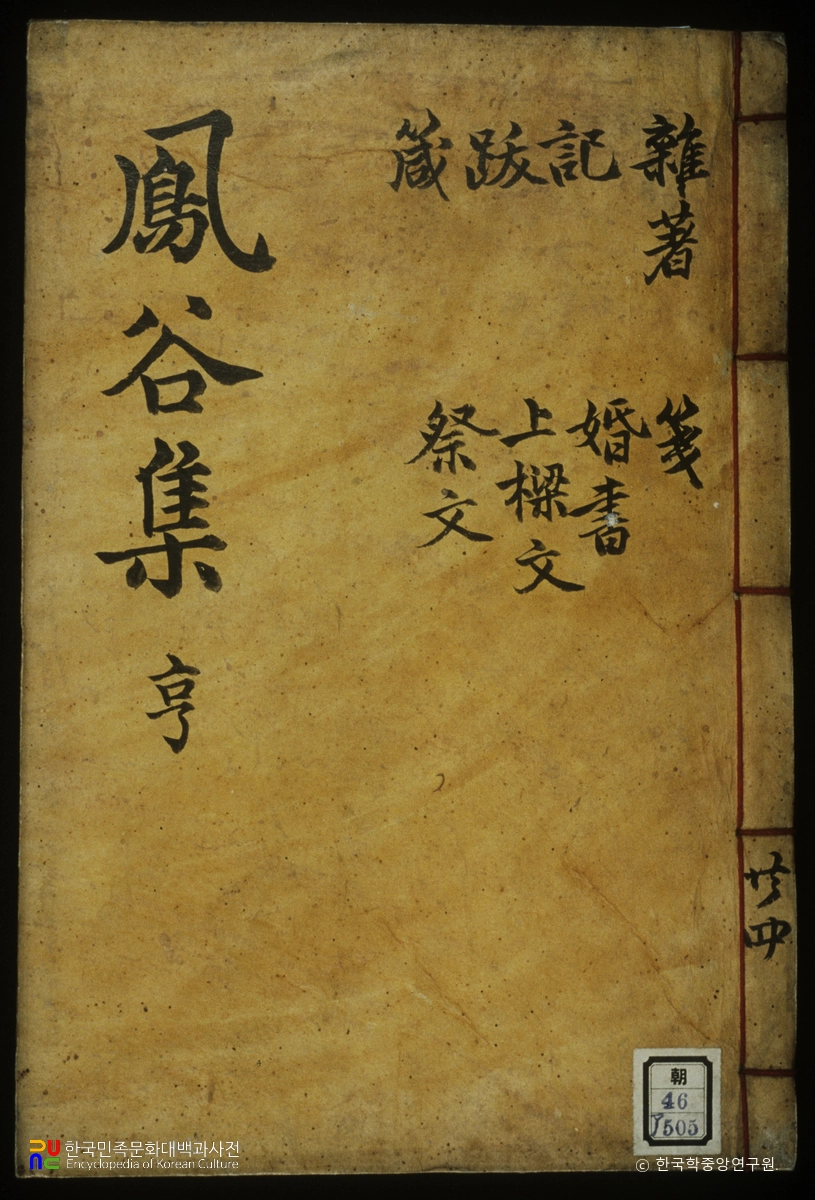 鳳谷集 亨
雜著
記
跋
箴
箋
婚書
上樑文
祭文
共四
朝
46
505
한국민족문화대백과사전
Encyclopedia of Korean Culture
© 한국학중앙연구원